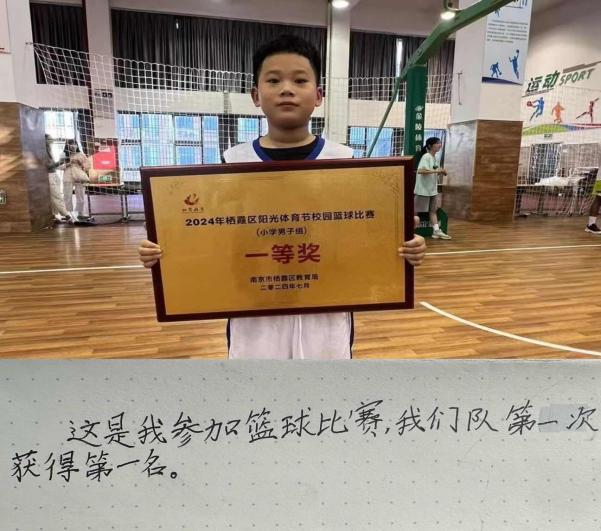 运动 SPORT
金陵体育
2024年栖霞区阳光体育节校园篮球比赛
(小学男子组)
一等奖
南京市栖霞区教育局
二〇二四年七月
这是我参加篮球比赛,我们队第一次
获得第一名。